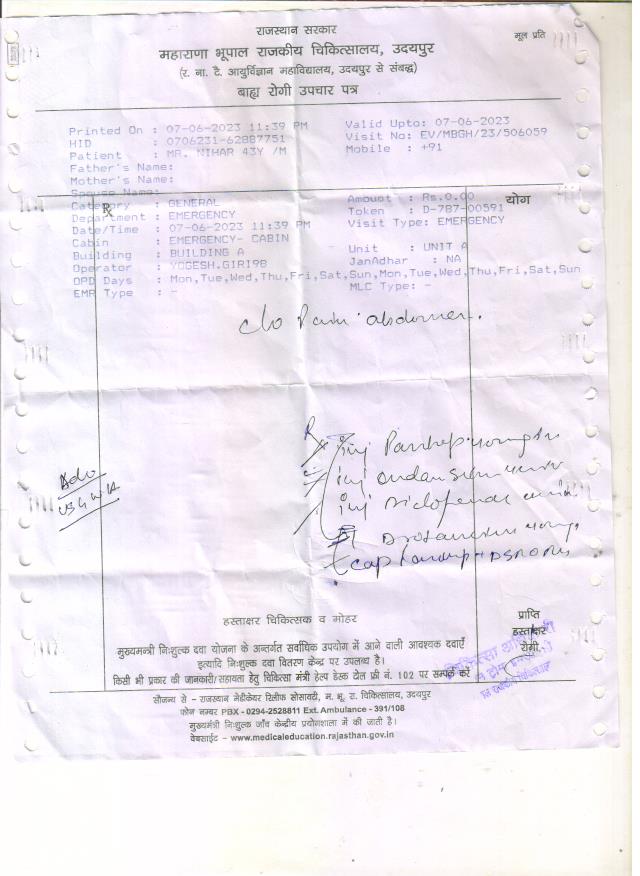 राजस्थान सरकार
मूल प्रति
महाराणा भूपाल राजकीय चिकित्सालय, उदयपुर
(र. ना. टै. आयुर्विज्ञान महाविद्यालय, उदयपुर से संबद्ध)
बाह्य रोगी उपचार पत्र
Printed On : 07-06-2023 11:39 PM Valid Upto: 07-06-2023
HID : 0706231-62887751 Visit No: EV/MBGH/23/506059
Patient : MR. NIHAR 43Y /M Mobile : +91
Father's Name:
Mother's Name:
Spouse Name:
Rx
Category : GENERAL Amount : Rs.0.00 योग
Department : EMERGENCY Token : D-787-00591
Date/Time : 07-06-2023 11:39 PM Visit Type: EMERGENCY
Cabin : EMERGENCY- CABIN
Building : BUILDING A Unit : UNIT A
Operator : YOGESH.GIRI98 JanAdhar : NA
OPD Days : Mon,Tue,Wed,Thu,Fri,Sat,Sun,Mon,Tue,Wed,Thu,Fri,Sat,Sun
EMR Type : - MLC Type: -
c/o Pain abdomen.
Rx
inj
inj
inj Diclofenac
Adv
USG W/A
cap
हस्ताक्षर चिकित्सक व मोहर
प्राप्ति
हस्ताक्षर
रोगी
मुख्यमन्त्री निःशुल्क दवा योजना के अन्तर्गत सर्वाधिक उपयोग में आने वाली आवश्यक दवाएँ
इत्यादि निःशुल्क दवा वितरण केन्द्र पर उपलब्ध है।
किसी भी प्रकार की जानकारी/सहायता हेतु चिकित्सा मंत्री हेल्प डेस्क टोल फ्री नं. 102 पर सम्पर्क करें
सौजन्य से - राजस्थान मेडीकेयर रिलीफ सोसायटी, म. भू. रा. चिकित्सालय, उदयपुर
फोन नम्बर PBX - 0294-2528811 Ext. Ambulance - 391/108
मुख्यमंत्री निःशुल्क जाँच केन्द्रीय प्रयोगशाला में की जाती है।
वेबसाईट - www.medicaleducation.rajasthan.gov.in